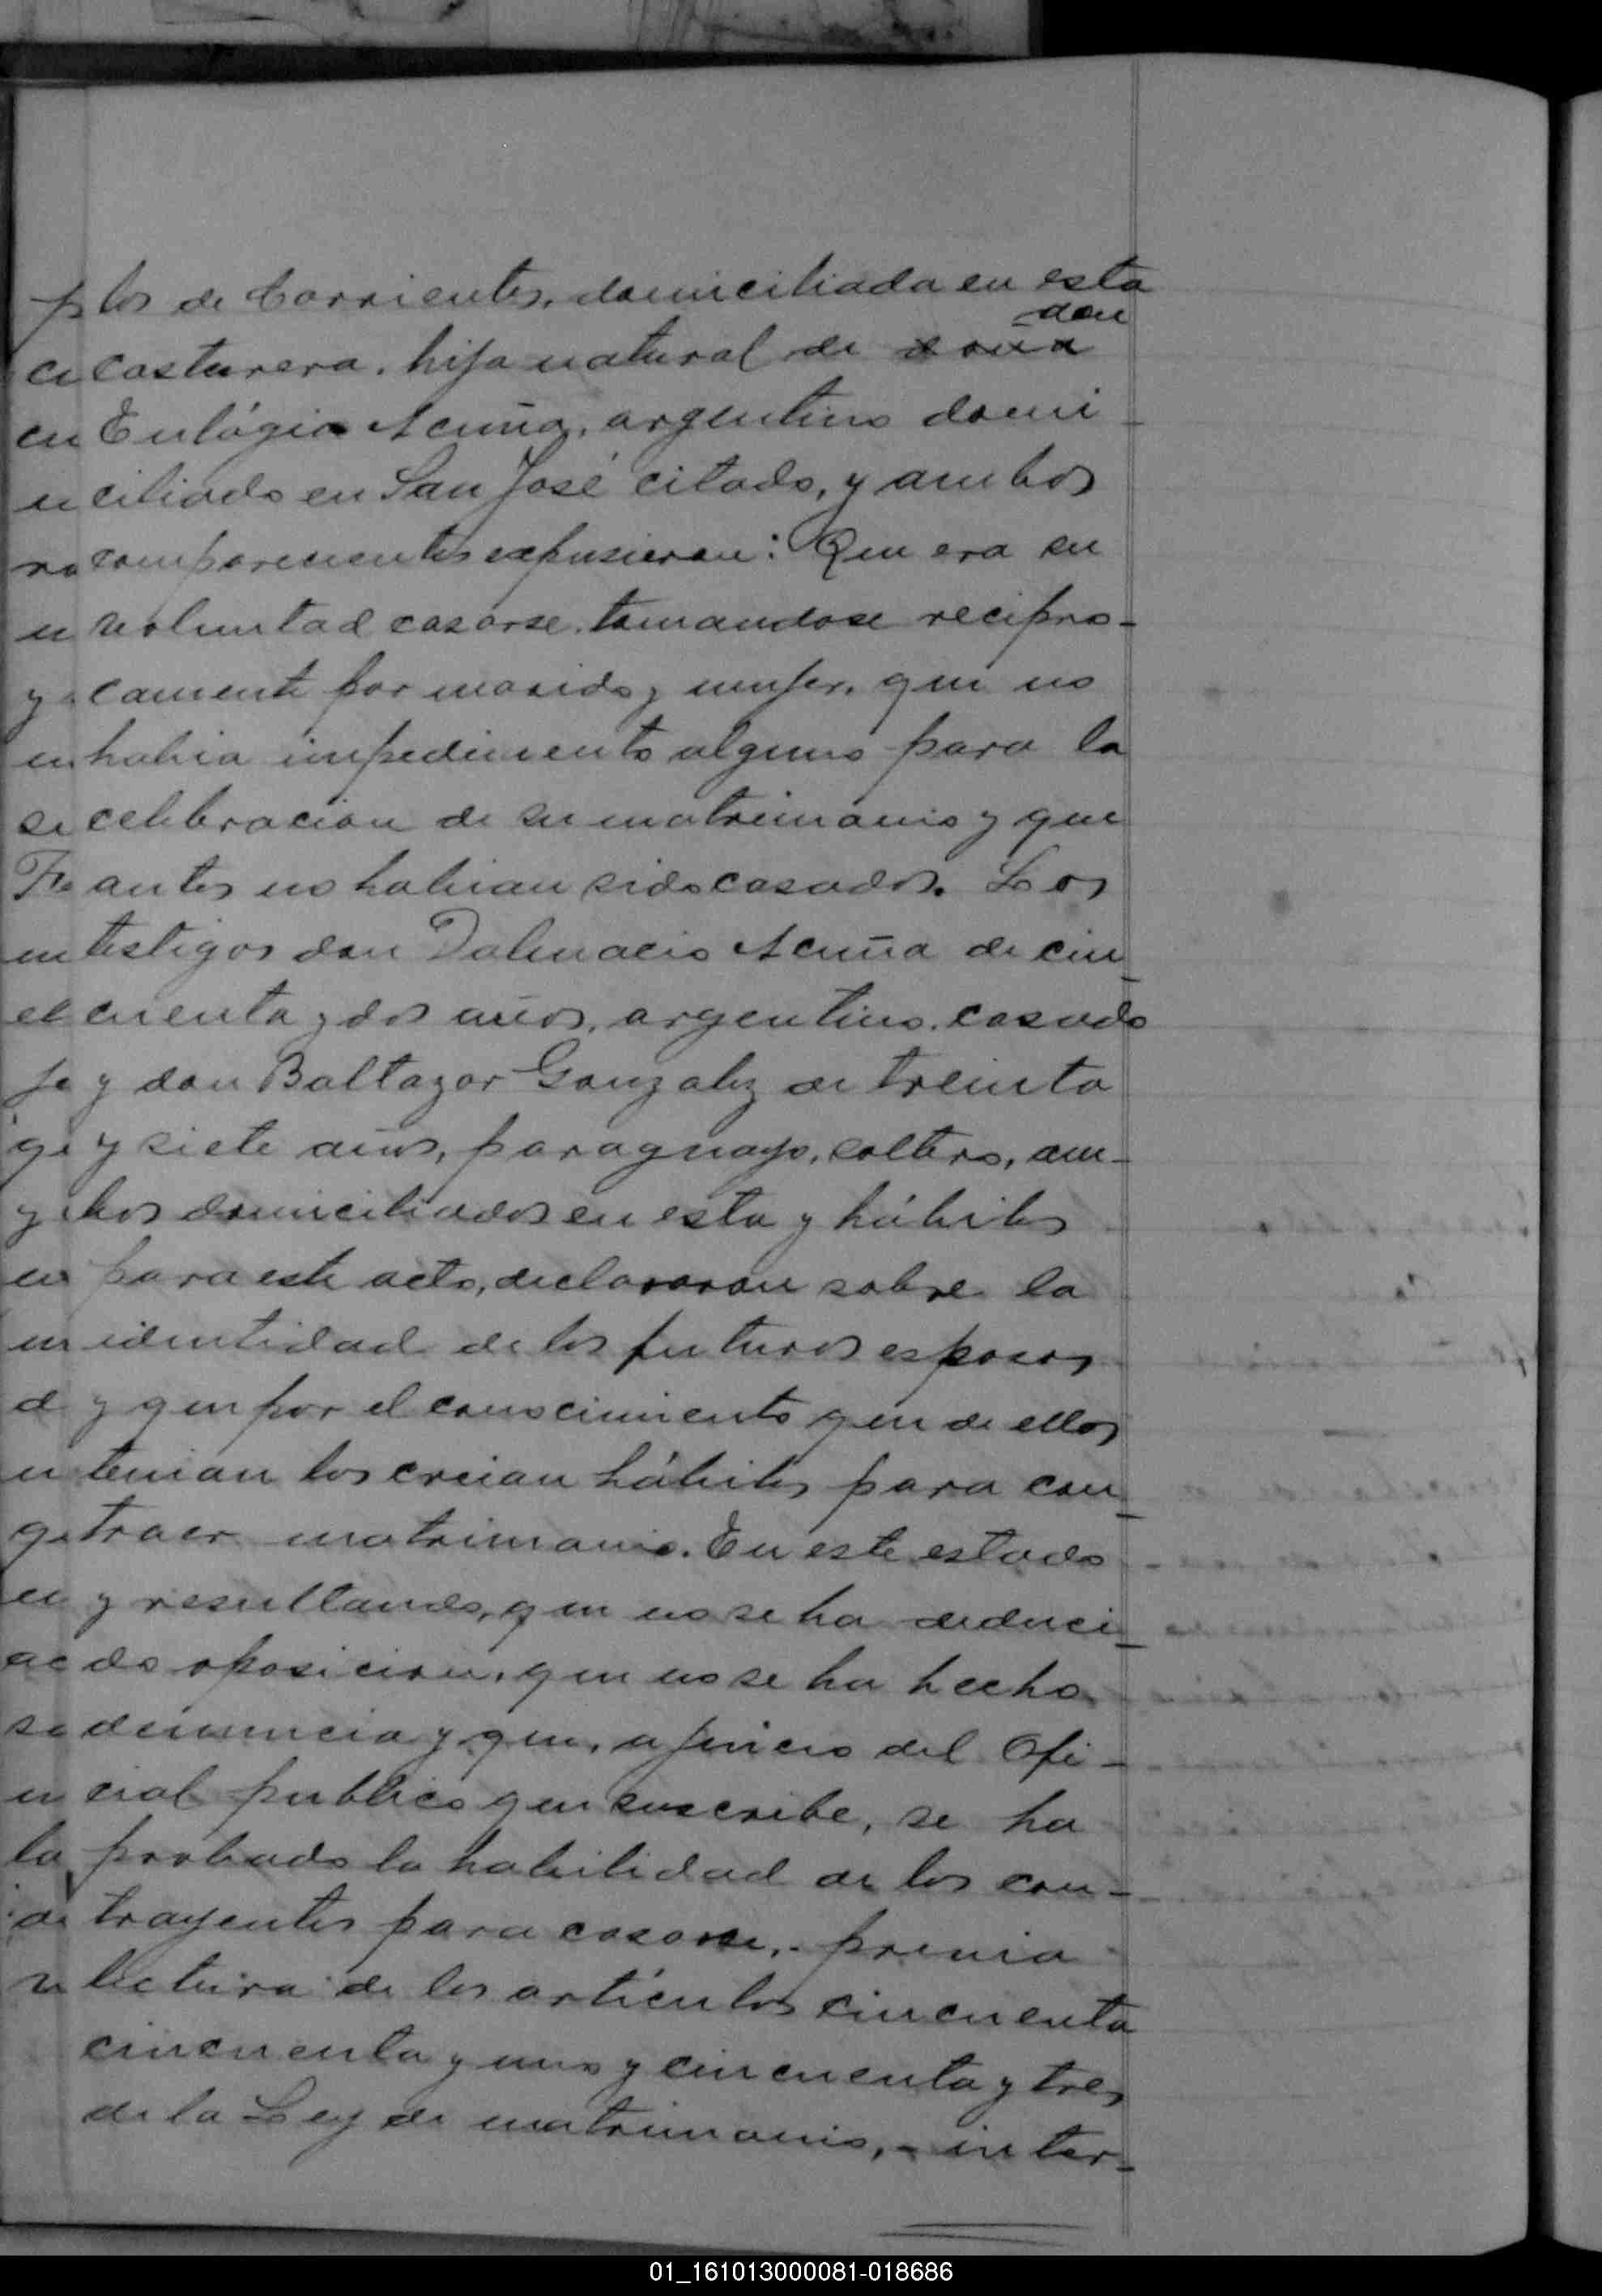 los de Corrientes, domiciliada en esta
don
costurera, hija natural de doña
Eulógio Acuña, argentino domi-
ciliado en San José citado, y ambos
comparecientes expusieron: Que era su
voluntad casarse, tomandose recipro-
camente por marido y mujer, que no
habia impedimento alguno para la
celebracion de su matrimonio y que
antes no habian sido casados. Los
testigos don Dalmacio Acuña de cin-
cuenta y dos años, argentino, casado
y don Baltazar Gonzalez de treinta
y siete años, paraguayo, soltero, am-
bos domiciliados en esta y hábiles
para este acto, declararon sobre la
identidad de los futuros esposos
y que por el conocimiento que de ellos
tenian los creian hábiles para con-
traer matrimonio. En este estado
y resultando, que no se ha deduci-
do oposicion, que no se ha hecho
denuncia y que, a juicio del Ofi-
cial publico que suscribe, se ha
probado la habilidad de los con-
trayentes para casarse, previa
lectura de los artículos cincuenta
cincuenta y uno y cincuenta y tres
de la Ley de matrimonio, - inter-
01_161013000081-018686